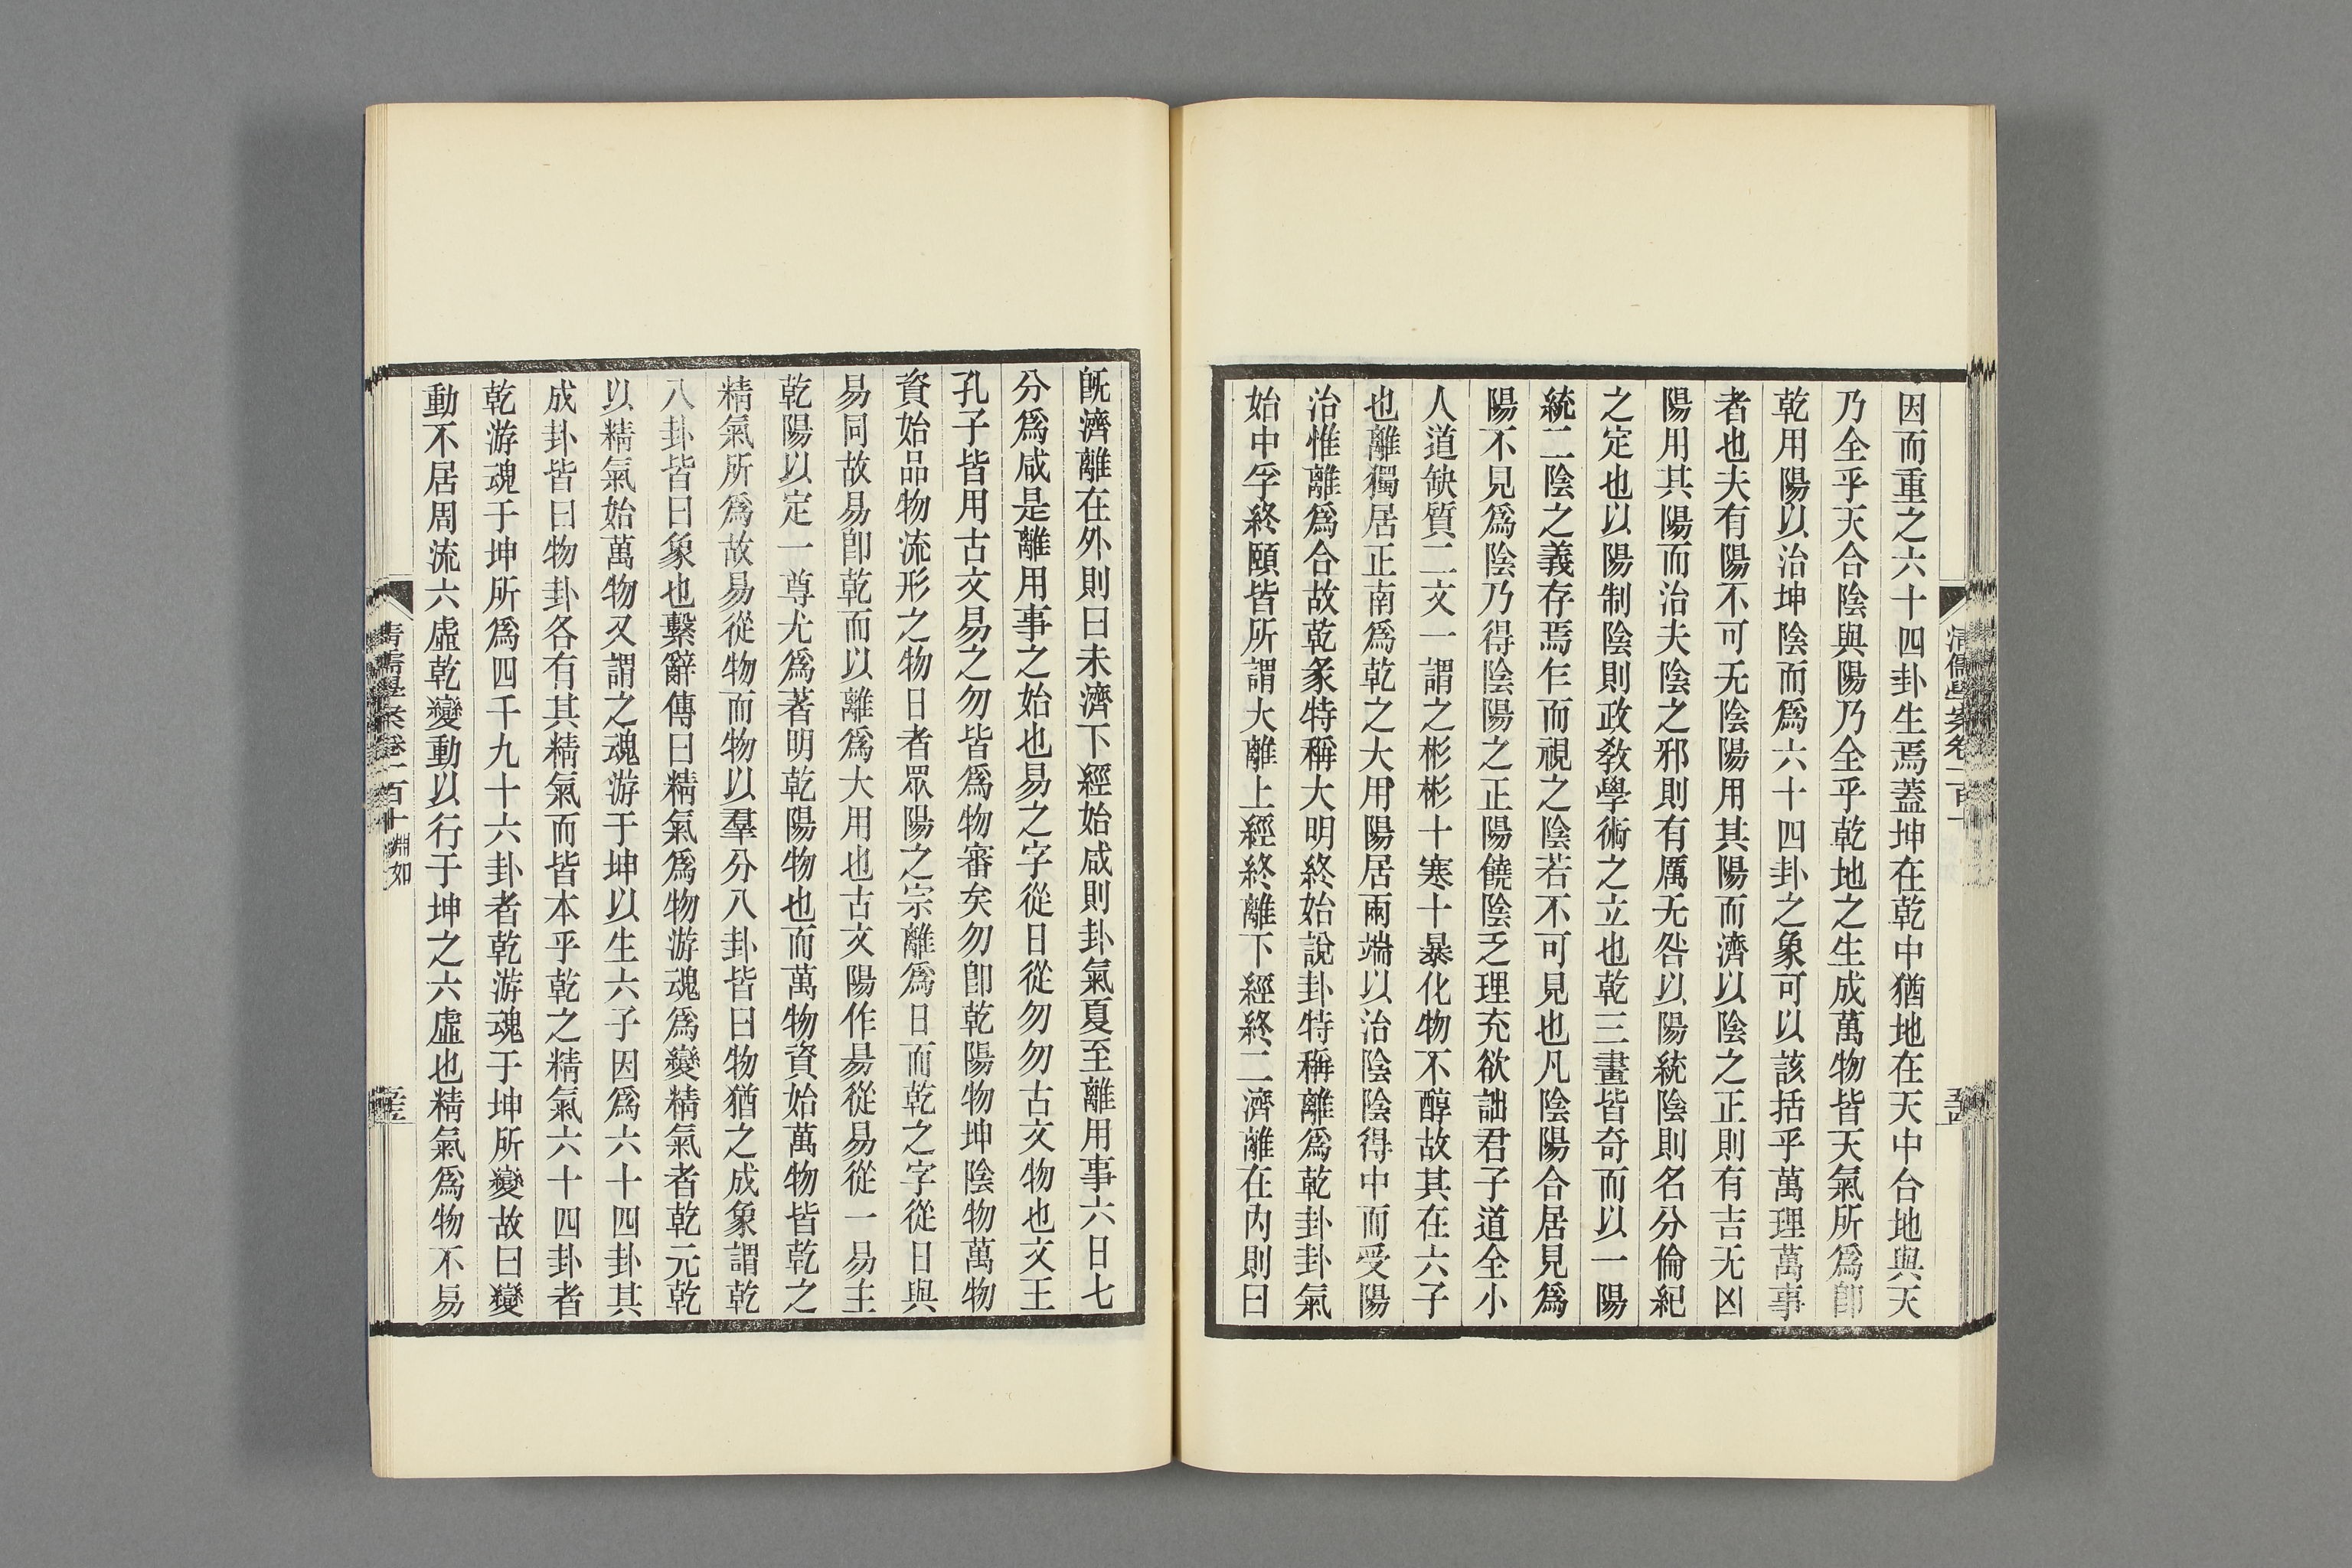 因而重之六十四卦生焉蓋坤在乾中猶地在天中合地與天
乃全乎天合陰與陽乃全乎乾地之生成萬物皆天氣所爲卽
乾用陽以治坤陰而爲六十四卦之象可以該括乎萬理萬事
者也夫有陽不可无陰陽用其陽而濟以陰之正則有吉无凶
陽用其陽而治夫陰之邪則有厲无咎以陽統陰則名分倫紀
之定也以陽制陰則政敎學術之立也乾三畫皆奇而以一陽
統二陰之義存焉乍而視之陰若不可見也凡陰陽合居見爲
陽不見爲陰乃得陰陽之正陽饒陰乏理充欲詘君子道全小
人道缺質二文一謂之彬彬十寒十暴化物不醇故其在六子
也離獨居正南爲乾之大用陽居兩端以治陰陰得中而受陽
治惟離爲合故乾彖特稱大明終始說卦特稱離爲乾卦卦氣
始中孚終頤皆所謂大離上經終離下經終二濟離在內則曰
旣濟離在外則曰未濟下經始咸則卦氣夏至離用事六日七
分爲咸是離用事之始也易之字從日從勿勿古文物也文王
孔子皆用古文易之勿皆爲物審矣勿卽乾陽物坤陰物萬物
資始品物流形之物日者眾陽之宗離爲日而乾之字從日與
易同故易卽乾而以離爲大用也古文陽作昜從易從一易主
乾陽以定一尊尤爲著明乾陽物也而萬物資始萬物皆乾之
精氣所爲故易從物而物以羣分八卦皆曰物猶之成象謂乾
八卦皆曰象也繫辭傳曰精氣爲物游魂爲變精氣者乾元乾
以精氣始萬物又謂之魂游于坤以生六子因爲六十四卦其
成卦皆曰物卦各有其精氣而皆本乎乾之精氣六十四卦者
乾游魂于坤所爲四千九十六卦者乾游魂于坤所變故曰變
動不居周流六虛乾變動以行于坤之六虛也精氣爲物不易
清儒學案卷一百十 淵如